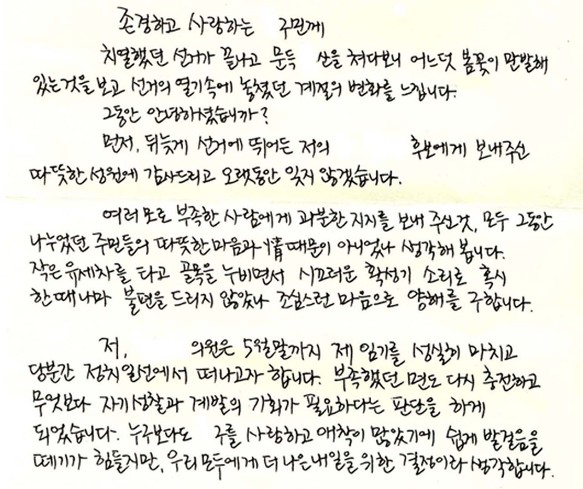 존경하고 사랑하는 주민께
치열했던 선거가 끝나고 문득 산을 쳐다보니 어느덧 봄꽃이 만발해
있는것을 보고 선거의 열기속에 놓쳤던 계절의 변화를 느낍니다.
그동안 안녕하셨습니까?
먼저, 뒤늦게 선거에 뛰어든 저의 후보에게 보내주신
따뜻한 성원에 감사드리고 오랫동안 잊지 않겠습니다.
여러모로 부족한 사람에게 과분한 지지를 보내 주신것, 모두 그동안
나누었던 주민들의 따뜻한 마음과 情때문이 아니었나 생각해 봅니다.
작은 유세차를 타고 골목을 누비면서 시끄러운 확성기 소리로 혹시
한때나마 불편을 드리지 않았나 조심스런 마음으로 양해를 구합니다.
저, 의원은 5월말까지 제 임기를 성실히 마치고
당분간 정치일선에서 떠나고자 합니다. 부족했던 면도 다시 충전하고
무엇보다 자기성찰과 계발의 기회가 필요하다는 판단을 하게
되었습니다. 누구보다도 구를 사랑하고 애착이 많았기에 쉽게 발걸음을
떼기가 힘들지만, 우리 모두에게 더 나은 내일을 위한 결정이라 생각합니다.